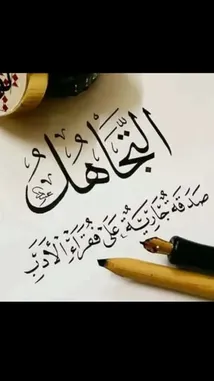 التَّجَاهُلُ
صَدَقَة جُارِيَةٌ عَلَى فُقَرَاءَ الْأَدَبِ